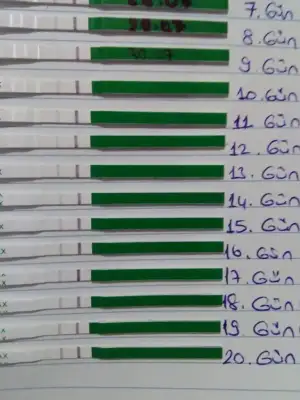 7. Gün
8. Gün
9. Gün
10. Gün
11. Gün
12. Gün
13. Gün
14. Gün
15. Gün
16. Gün
17. Gün
18. Gün
19 Gün
20. Gün